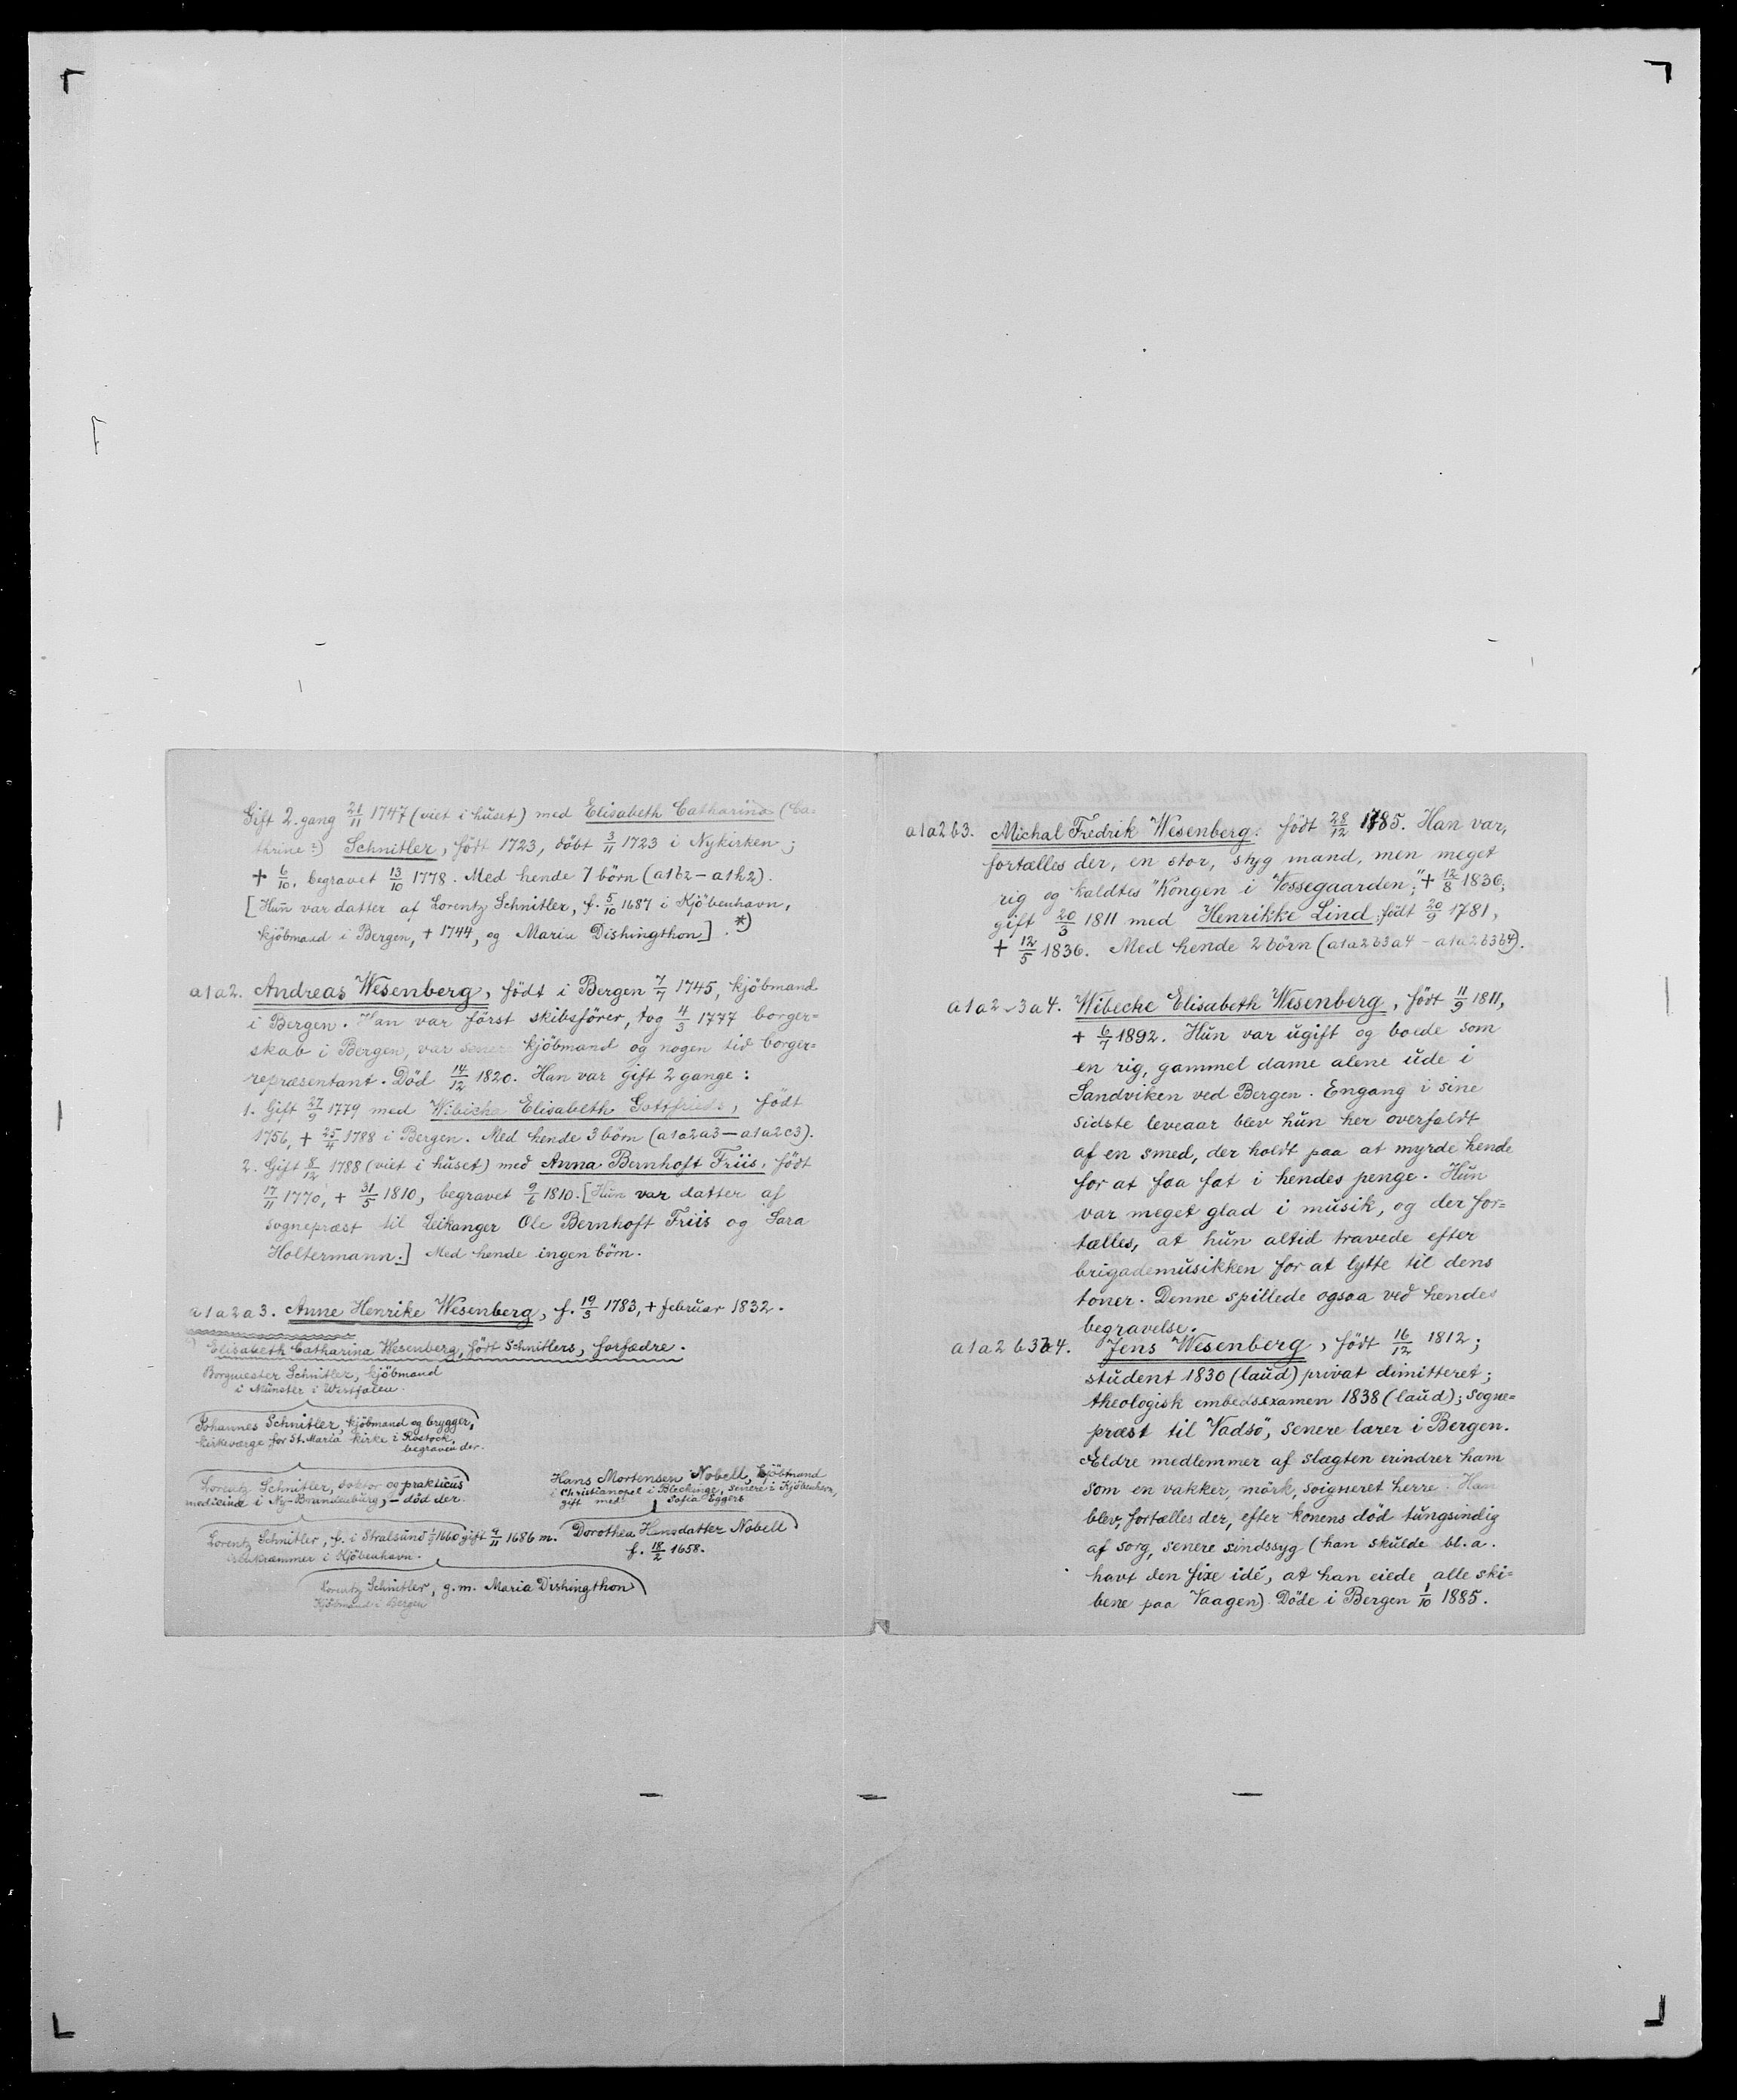 Gift 2. gang 21/11 1747 (viet i huset) med Elisabeth Catharina (Ca-
thrine?) Schnitler, födt 1723, döbt 3/11 1723 i Nykirken;
+ 6/10, begravet 13/10 1778. Med hende 7 börn (a1b2 – a1h2).
[Hun var datter af Lorentz Schnitler, f. 5/10 1687 i Kjöbenhavn,
kjöbmand i Bergen, + 1744, og Maria Dishingthon]. *)
a1a2. Andreas Wesenberg, födt i Bergen 7/7 1745, kjöbmand
i Bergen. Han var först skibsförer, tog 4/3 1777 borger=
skab i Bergen, var senere kjöbmand og nogen tid borger=
repræsentant. Död 14/12 1820. Han var gift 2 gange:
1. Gift 27/9 1779 med Wibicha Elisabeth Gottfrieds, födt
1756, + 25/4 1788 i Bergen. Med hende 3 börn (a1a2a3 – a1a2c3).
2. Gift 8/12 1788 (viet i huset) med Anna Bernhoft Friis, födt
17/11 1770, + 31/5 1810, begravet 9/6 1810. [Hun var datter af
sognepræst til Leikanger Ole Bernhoft Friis og Sara
Holtermann.] Med hende ingen börn.
a1a2a3. Anne Henrike Wesenberg, f. 19/3 1783, + februar 1832.
Elisabeth Catharina Wesenberg, födt Schnitlers, forfædre.
Borgmester Schnitler, kjöbmand
i Münster i Westfalen.
Johannes Schnitler, kjöbmand og brygger,
kirkeværge for St. Maria kirke i Rostock,
begraven der.
Lorentz Schnitler, doktor og prakticus
medicinæ i Ny-Brandenburg, – död der.
Hans Mortensen Nobell, kjöbmand
i Christianopel i Bleckinge, senere i Kjöbenhavn,
gift med Sofia Eggers
Lorentz Schnitler, f. i Stralsund 1660 gift 4/11 1686 m. Dorothea Hansdatter Nobell
f. 18/2 1658.
kræmmer i Kjöbenhavn.
Lorentz Schnitler, g. m. Maria Dishingthon
Kjöbmand i Bergen
a1a2b3. Michal Fredrik Wesenberg. födt 28/12 1785. Han var,
fortælles der, en stor, styg mand, men meget
rig og kaldtes "Kongen i Vossegaarden"; + 12/8 1836;
gift 20/3 1811 med Henrikke Lind, födt 20/9 1781,
+ 12/5 1836. Med hende 2 börn (a1a2b3a4 – a1a2b3b4).
a1a2 3a4. Wibecke Elisabeth Wesenberg, födt 11/9 1811,
+ 6/7 1892. Hun var ugift og boede som
en rig, gammel dame alene ude i
Sandviken ved Bergen. Engang i sine
sidste leveaar blev hun her overfaldt
af en smed, der holdt paa at myrde hende
for at faa fat i hendes penge. Hun
var meget glad i musik, og der for=
tælles, at hun altid travede efter
brigademusikken for at lytte til dens
toner. Denne spillede ogsaa ved hendes
begravelse.
a1a2b3b4. Jens Wesenberg, födt 16/12 1812;
student 1830 (laud) privat dimitteret;
theologisk embedsexamen 1838 (laud); sogne=
præst til Vadsö, senere lærer i Bergen.
Ældre medlemmer af slægten erindrer ham
som en vakker, mörk, soigneret herre. Han
blev, fortælles der, efter konens död tungsindig
af sorg, senere sindssyg (han skulde bl. a.
havt den fixe idé, at han eiede alle ski=
bene paa Vaagen). Döde i Bergen 1/10 1885.